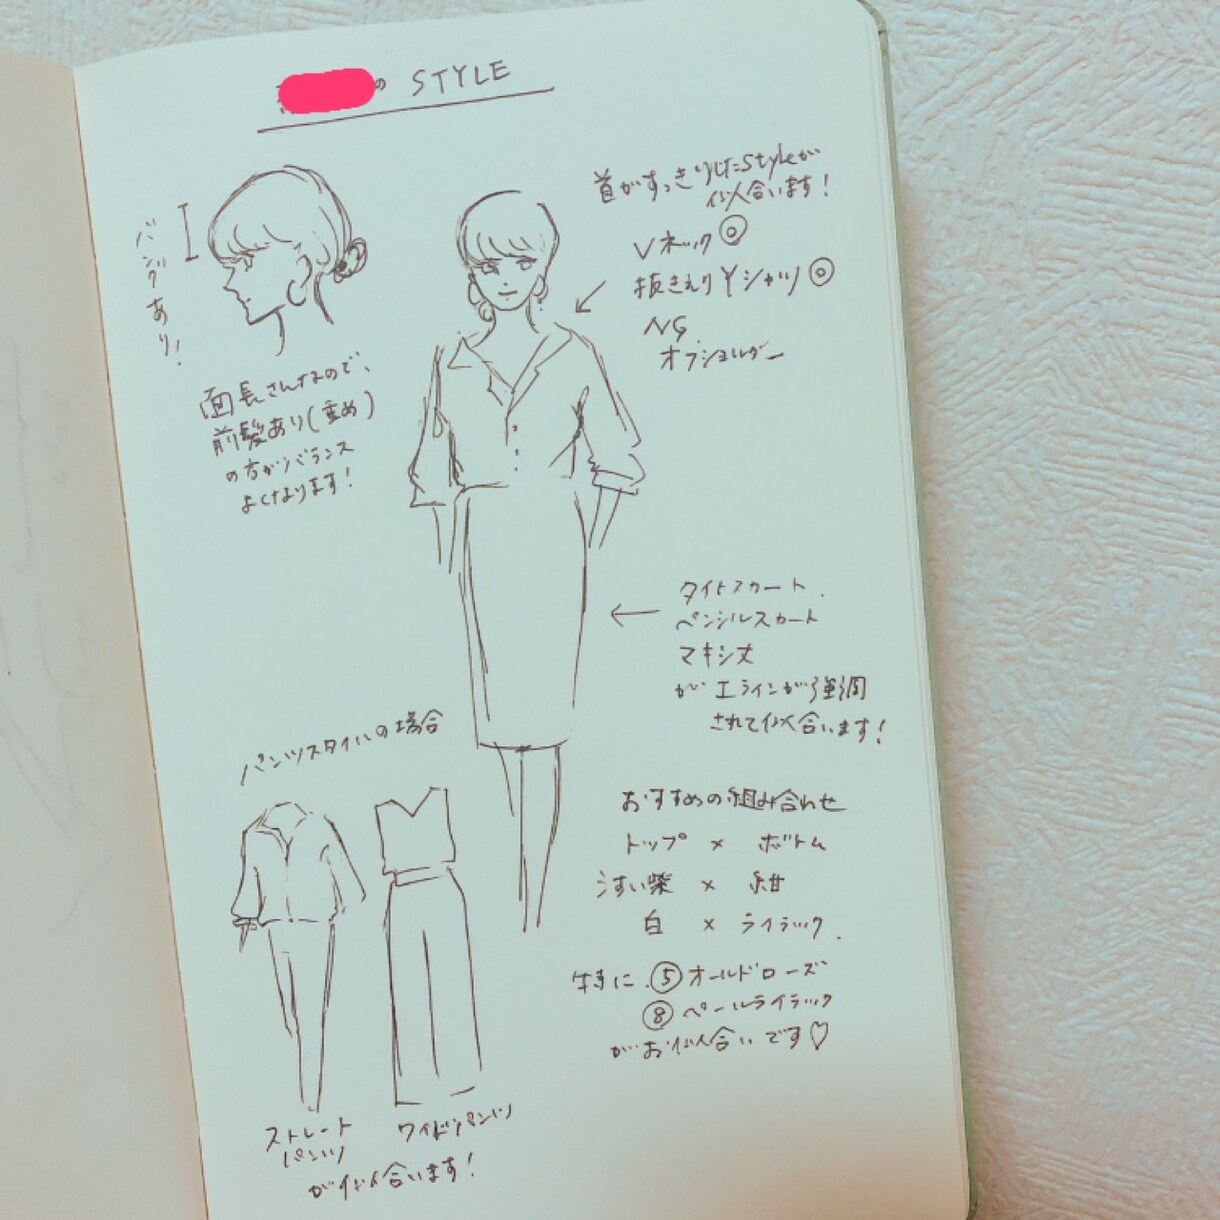 の STYLE
バングあり!
面長さんなので、
前髪あり(重め)
の方がバランス
よくなります!
首がすっきりしたStyleが
似合います!
Vネック◎
抜きえり Yシャツ◎
NG
オフショルダー
タイトスカート.
ペンシルスカート
マキシ丈
が Iラインが強調
されて似合います!
パンツスタイルの場合
ストレート
パンツ
ワイドパンツ
が似合います!
おすすめの組み合わせ
トップ × ボトム
うすい紫 × 紺
白 × ライラック.
特に.⑤オールドローズ
⑧ペールライラック
がお似合いです♡